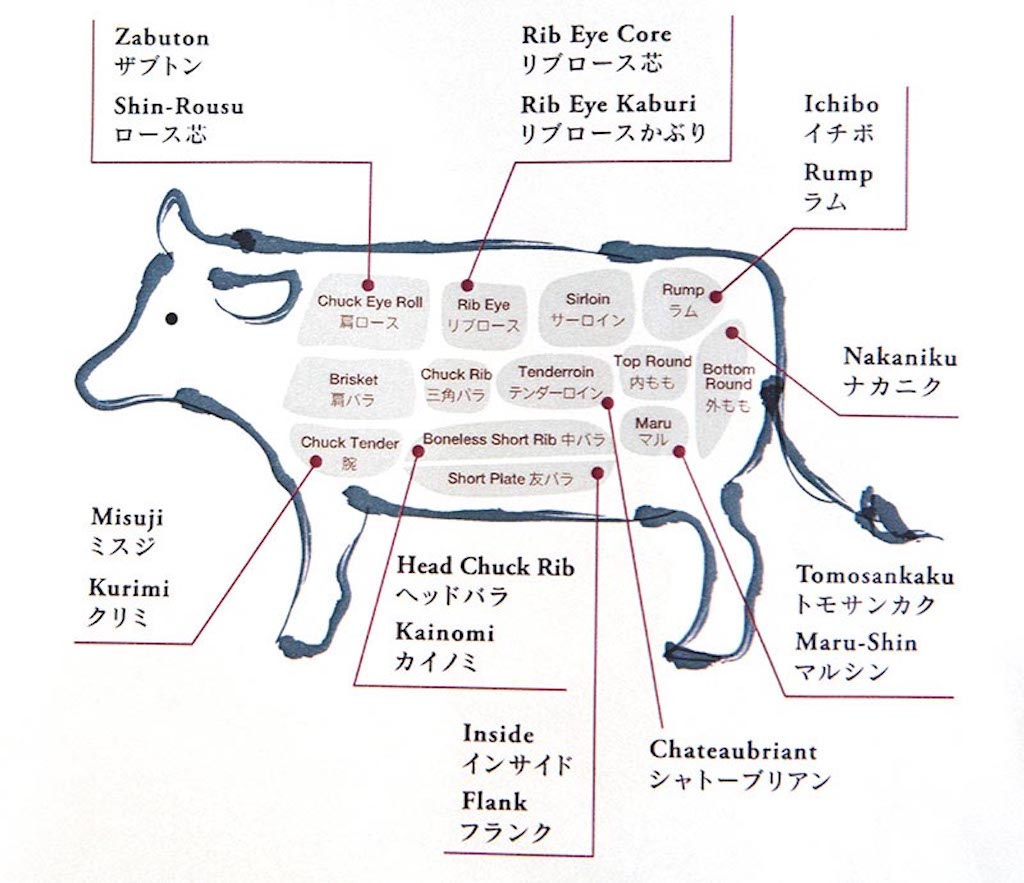 Zabuton
ザブトン
Shin-Rousu
ロース芯
Rib Eye Core
リブロース芯
Rib Eye Kaburi
リブロースかぶり
Ichibo
イチボ
Rump
ラム
Chuck Eye Roll
肩ロース
Rib Eye
リブロース
Sirloin
サーロイン
Rump
ラム
Brisket
肩バラ
Chuck Rib
三角バラ
Tenderroin
テンダーロイン
Top Round
内もも
Bottom
Round
外もも
Nakaniku
ナカニク
Chuck Tender
腕
Boneless Short Rib 中バラ
Short Plate 友バラ
Maru
マル
Misuji
ミスジ
Kurimi
クリミ
Head Chuck Rib
ヘッドバラ
Kainomi
カイノミ
Tomosankaku
トモサンカク
Maru-Shin
マルシン
Inside
インサイド
Flank
フランク
Chateaubriant
シャトーブリアン